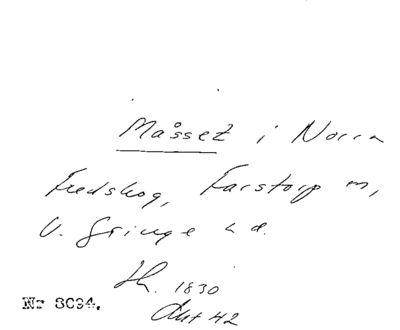 Måsset i Norra
Fredskog, Farstorp m,
V. Göinge hd.
Sk. 1830
Akt 42
Nr 8094.